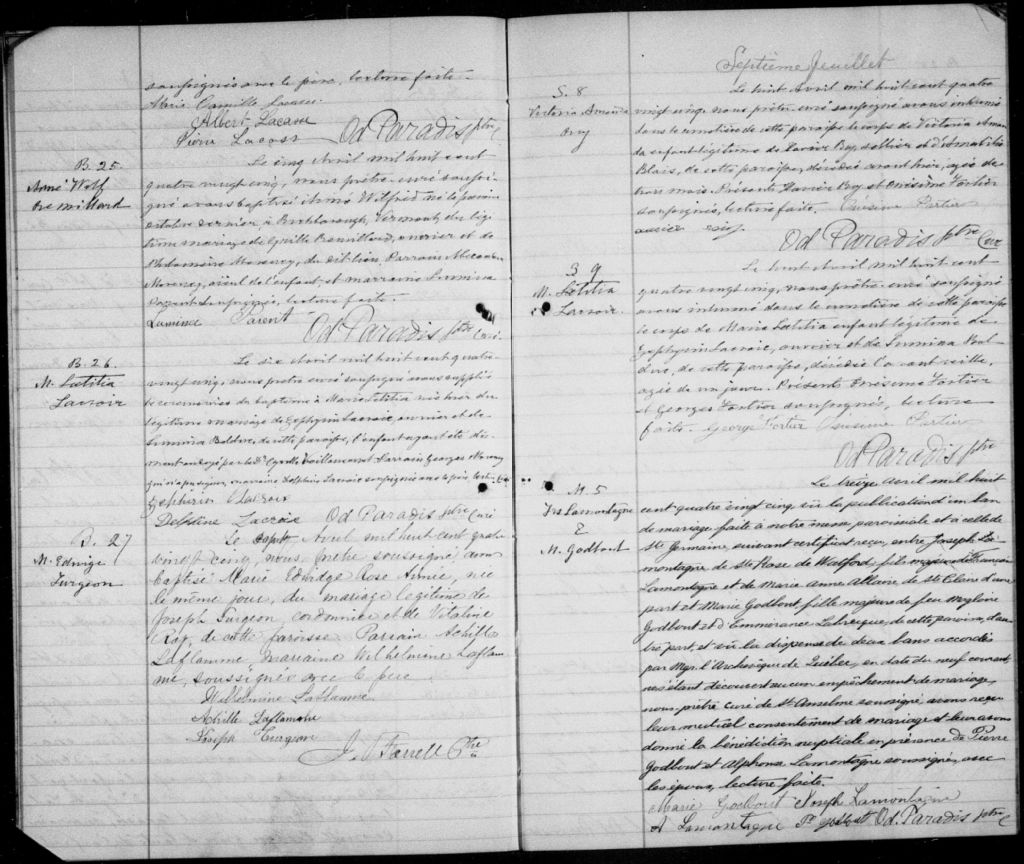 soussignés avec le père, lecture faite.
Marie Camille Lacasse
Albert Lacasse
Pierre Lacasse Od Paradis ptre C
B. 25.
Armé Wilf
Bremillard
Le cinq Avril mil huit cent
quatre vingt cinq, nous prêtre curé soussi-
gné avons baptisé Armé Wilfred né le
octobre dernier à Vermont, du légi-
time mariage de Bremillard, ouvrier et de
Philomène Morency, du dit lieu. Parrain
Morency, aïeul de l'enfant et marraine Luminia
Parent soussignée, lecture faite.
Luminia Parent
Od Paradis ptre Curé
B. 26.
M. Lætitia
Lacroix
Le dix Avril mil huit cent quatre
vingt cinq, nous prêtre curé soussigné avons suppléé
les cérémonies du baptême à Marie Lætitia née hier du
légitime mariage de Zéphyrin Lacroix, ouvrier et de
Luminia de cette paroisse, l'enfant ayant été dû-
ment ondoyé par le Dr Cyrille Vaillancourt Parrain Georges
qui n'a pu signer, marraine Delphine Lacroix soussignée avec le père lecture faite
Zephirin Lacroix
Delphine Lacroix Od Paradis ptre Curé
B. 27
M. Edwige
Turgeon
Le sept Avril mil huit cent quatre
vingt cinq, nous, prêtre soussigné avons
baptisé Marie Edwidge Rose Annie, née
le même jour, du mariage légitime de
Joseph Turgeon, cordonnier et de Vitaline
Roy, de cette paroisse. Parrain Achille
Laflamme, marraine Wilhelmine Laflam-
me, soussignés avec le père.
Wilhelmine Laflamme
Achille Laflamme
Joseph Turgeon
J. O. Farrell Ptre
Septième feuillet
S. 8
Victoria Amanda
Roy
Le huit Avril mil huit cent quatre
vingt cinq, nous prêtre, curé soussigné avons inhumé
dans le cimetière de cette paroisse le corps de Victoria Aman-
da enfant légitime de Xavier Roy, sellier et d'
Blais, de cette paroisse, décédée avant hier, agée de
trois mois. Présents Xavier Roy et Onésime Fortier
soussignés, lecture faite. Onésime Fortier
Xavier Roy
Od Paradis ptre Curé
S 9
M. Lætitia
Lacroix.
Le huit Avril mil huit cent
quatre vingt cinq, nous prêtre, curé soussigné
avons inhumé dans le cimetière de cette paroisse
le corps de Marie Lætitia enfant légitime de
Zéphyrin Lacroix, ouvrier et de Luminia
de cette paroisse, décédée l'avant veille,
agée de un jour. Présents Onésime Fortier
et Georges Fortier soussignés, lecture
faite. George Fortier Onésime Fortier
Od Paradis ptre
M. 5
Jos Lamontagne
&
M. Godbout
Le treize avril mil huit
cent quatre vingt cinq, vû la publication d'un ban
de mariage faite à notre messe paroissiale et à celle de
Ste Germaine, suivant certificat reçu, entre Joseph La-
montagne de Ste Rose de Watford, fils majeur de François
Lamontagne et de Marie Anne Allaire de Ste Claire d'une
part et Marie Godbout fille majeure de feu Magloire
Godbout et d'Emmérance Labrecque, de cette paroisse, d'au-
tre part, et vû la dispense de deux bans accordés
par Mgr. l'Archevêque de Québec, en date du neuf courant,
ne s'étant découvert aucun empêchement de mariage,
nous, prêtre curé de St Anselme soussigné avons reçu
leur mutuel consentement de mariage et leur avons
donné la bénédiction nuptiale en présence de Pierre
Godbout et Alphonse Lamontagne soussignés, avec
les époux, lecture faite.
Marie Godbout Joseph Lamontagne
A Lamontagne P. godbout Od. Paradis ptre C